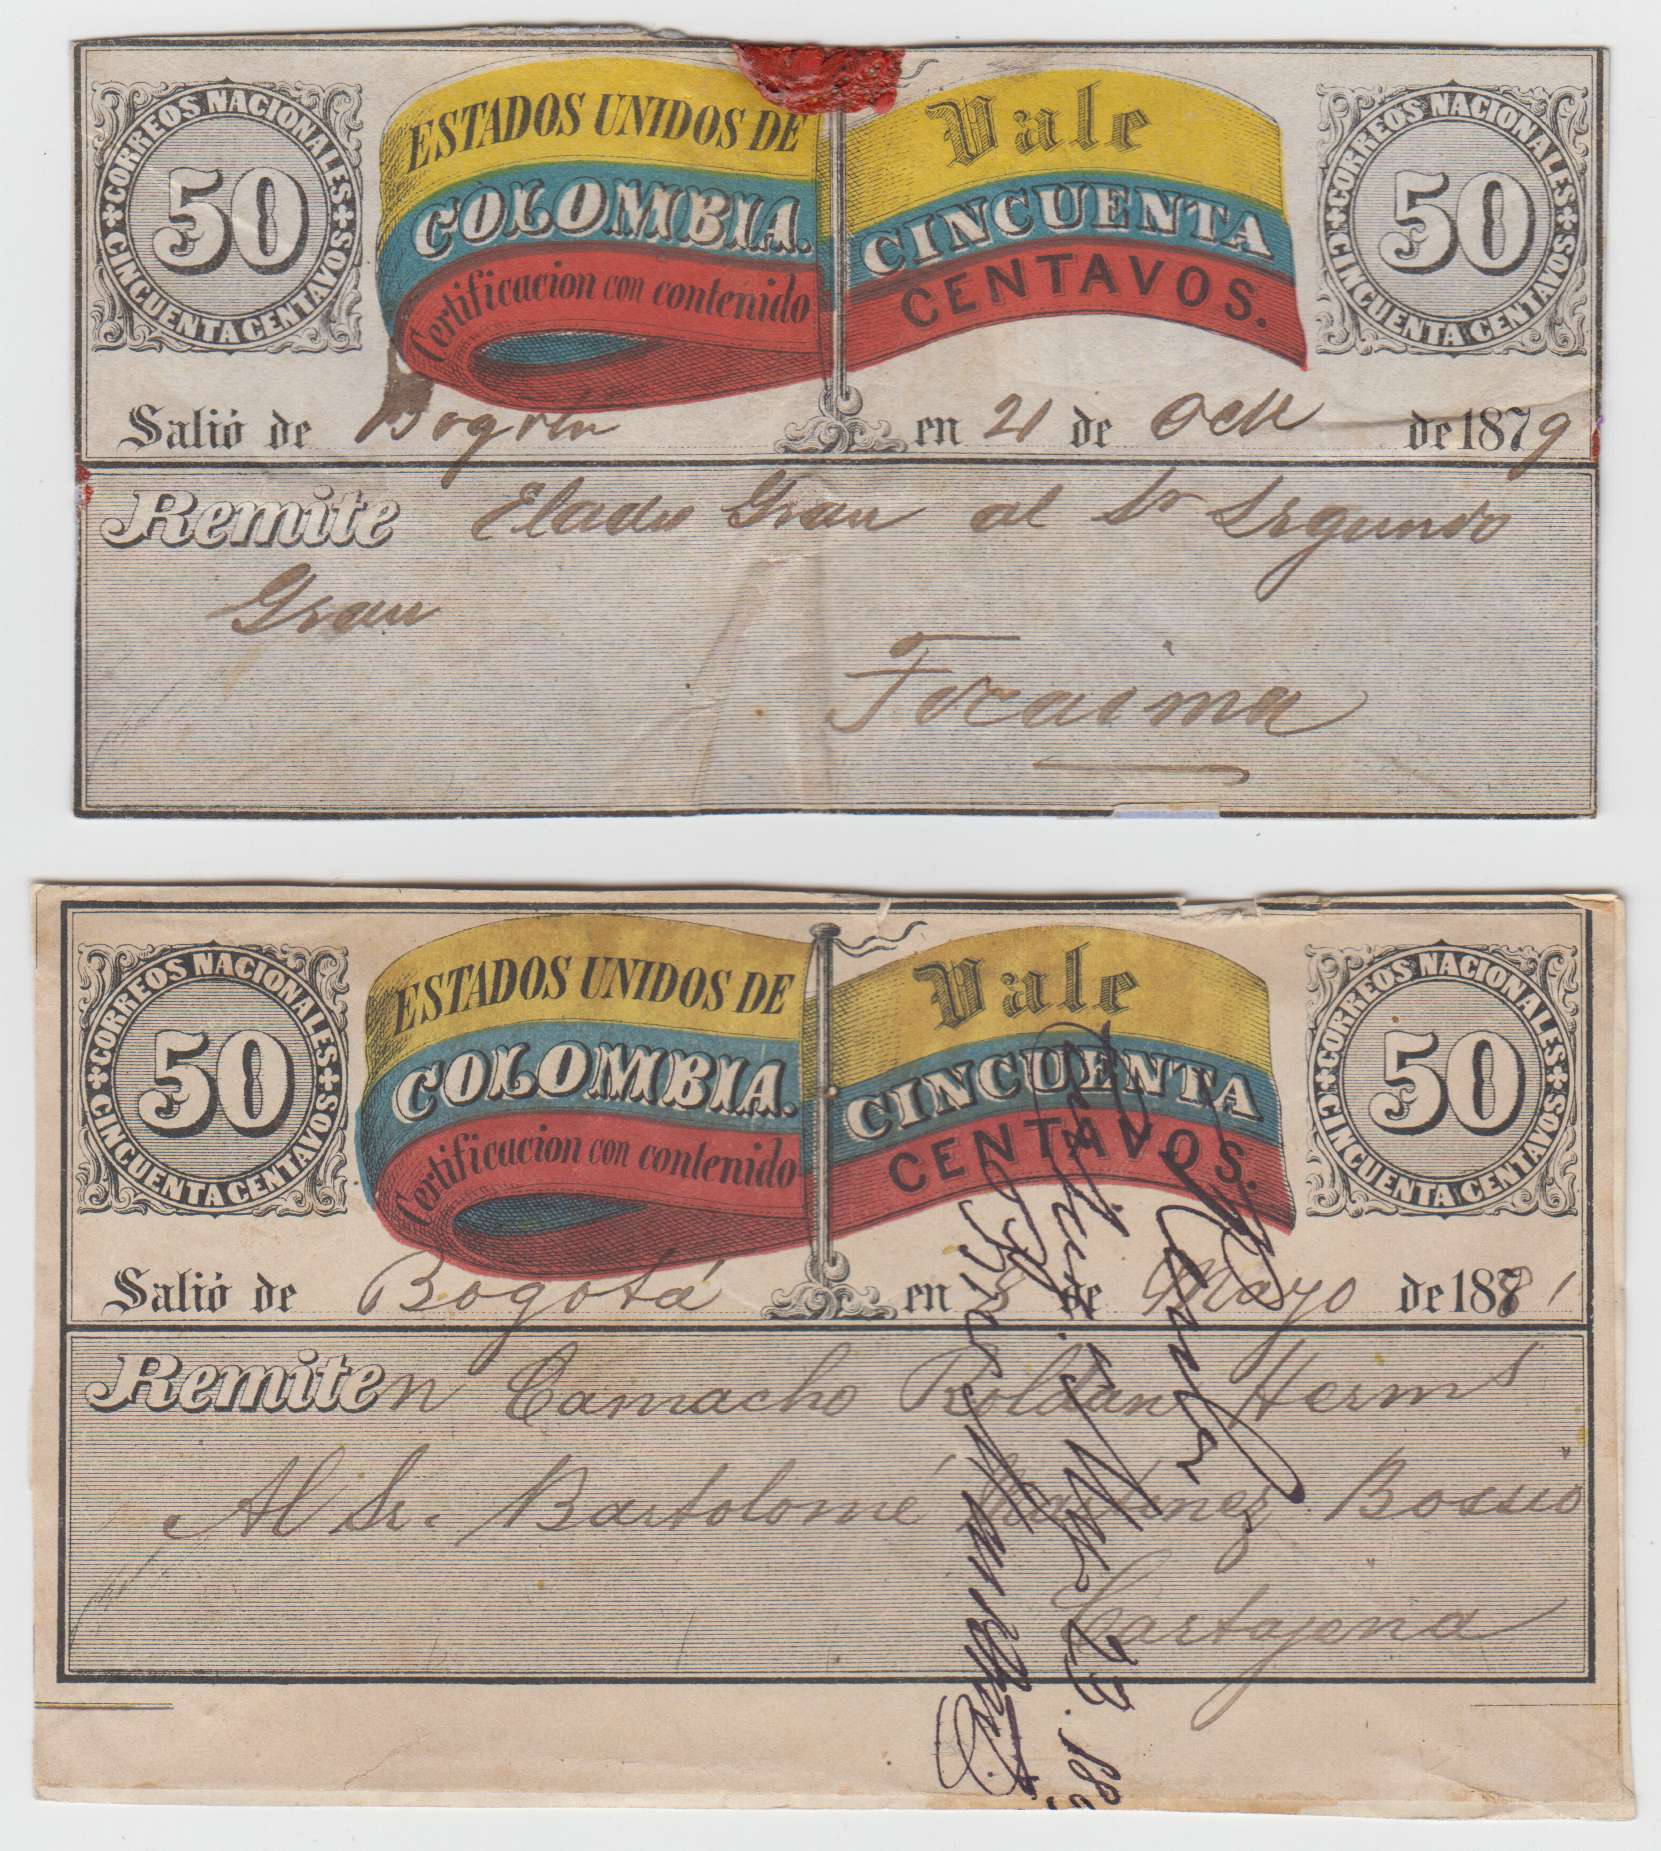 CORREOS NACIONALES
50
CINCUENTA CENTAVOS
ESTADOS UNIDOS DE
COLOMBIA.
Certificacion con contenido
Vale
CINCUENTA
CENTAVOS.
CORREOS NACIONALES
50
CINCUENTA CENTAVOS
Salió de Bogotá en 21 de Oct de 1879
Remite Eladio Grau al Sr Segundo
Grau
Tocaima
CORREOS NACIONALES
50
CINCUENTA CENTAVOS
ESTADOS UNIDOS DE
COLOMBIA.
Certificacion con contenido
Vale
CINCUENTA
CENTAVOS.
CORREOS NACIONALES
50
CINCUENTA CENTAVOS
Salió de Bogotá en 8 de Mayo de 1881
Remiten Camacho Roldan Herms
Al Sr. Bartolomé Martínez Bossio
Cartajena
23. 18